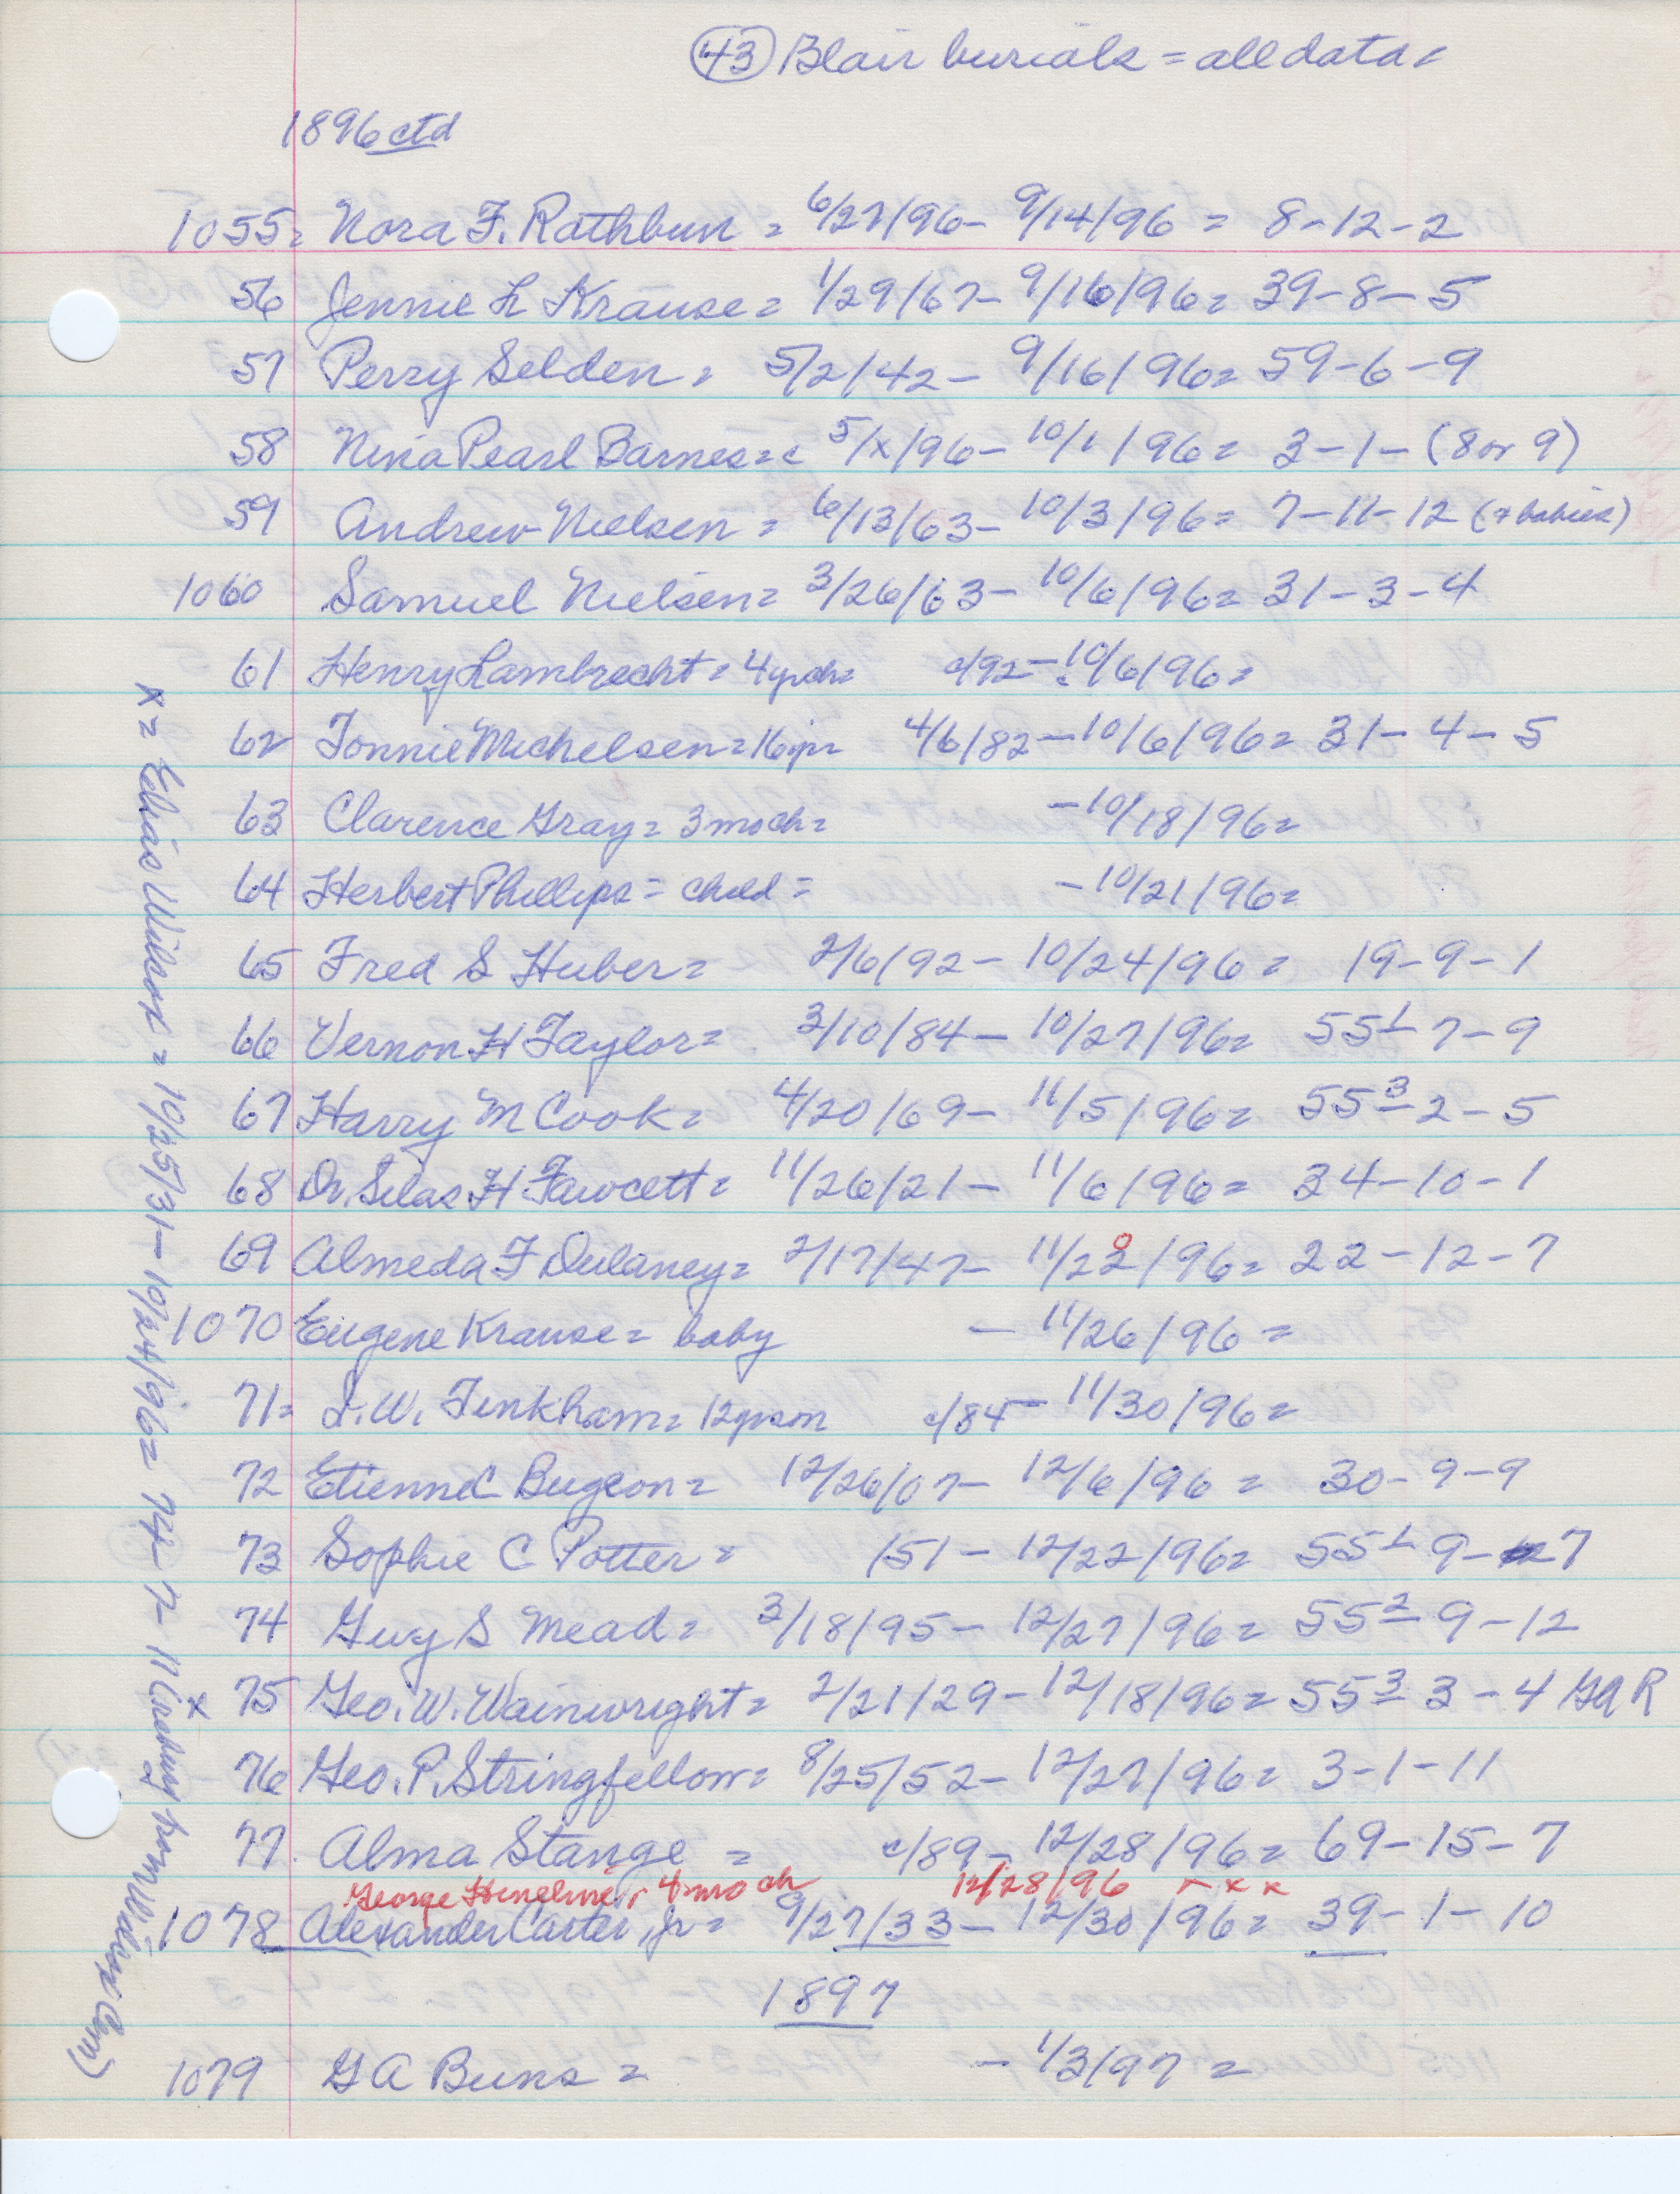 (43) Blair burials = all data =
1896 ctd
1055 = Nora F. Rathbun = 6/27/96 - 9/14/96 = 8-12-2
56 Jennie L Krause = 1/29/67 - 9/16/96 = 39-8-5
57 Perry Selden = 5/2/42 - 9/16/96 = 59-6-9
58 Nina Pearl Barnes = c 5/x/96 - 10/1/96 = 3-1-(8 or 9)
59 Andrew Nielsen = 6/13/63 - 10/3/96 = 7-11-12 (+ babies)
1060 Samuel Nielsen = 3/26/63 - 10/6/96 = 31-3-4
61 Henry Lambrecht = 4 yr ch = c/92 - 10/6/96 =
62 Tonnie Michelsen = 16 yr = 4/6/82 - 10/6/96 = 31-4-5
63 Clarence Gray = 3 mo ch = - 10/18/96 =
64 Herbert Phillips = child = - 10/21/96 =
65 Fred S Huber = 2/6/92 - 10/24/96 = 19-9-1
66 Vernon H Taylor = 3/10/84 - 10/27/96 = 55 1 7-9
67 Harry M Cook = 4/20/69 - 11/5/96 = 55 3 2-5
68 Dr. Silas H Fawcett = 11/26/21 - 11/6/96 = 34-10-1
69 Almeda F Dulaney = 2/17/47 - 11/22/96 = 22-12-7
1070 Eugene Krause = baby - 11/26/96 =
71 = I. W. Tinkham = 12 yr son c/84 - 11/30/96 =
72 Etienne C Bugeon = 12/26/07 - 12/6/96 = 30-9-9
73 Sophie C Potter = /51 - 12/22/96 = 55 1 9-7
74 Guy S Mead = 3/18/95 - 12/27/96 = 55 2 9-12
x 75 Geo. W. Wainwright = 2/21/29 - 12/18/96 = 55 3 3-4 GAR
76 Geo. P. Stringfellow = 8/25/52 - 12/27/96 = 3-1-11
77. Alma Stange = c/89 - 12/28/96 = 69-15-7
George 4 mo ch 12/28/96 - x x
1078 Alexander Carter, Jr = 9/27/33 - 12/30/96 = 39-1-10
1897
1079 G A Buns = - 1/3/97 =
x = Elias Wilson = 10/25/31 - 10/24/96 = 74-7-11 ( from Cem)